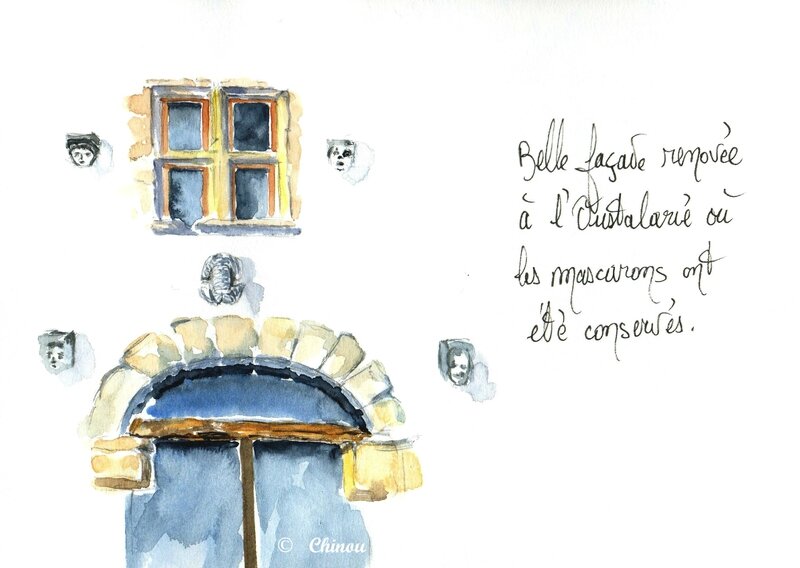 Belle façade renovée
à l'Oustalarié où
les mascarons ont
été conservés.
© Chinou